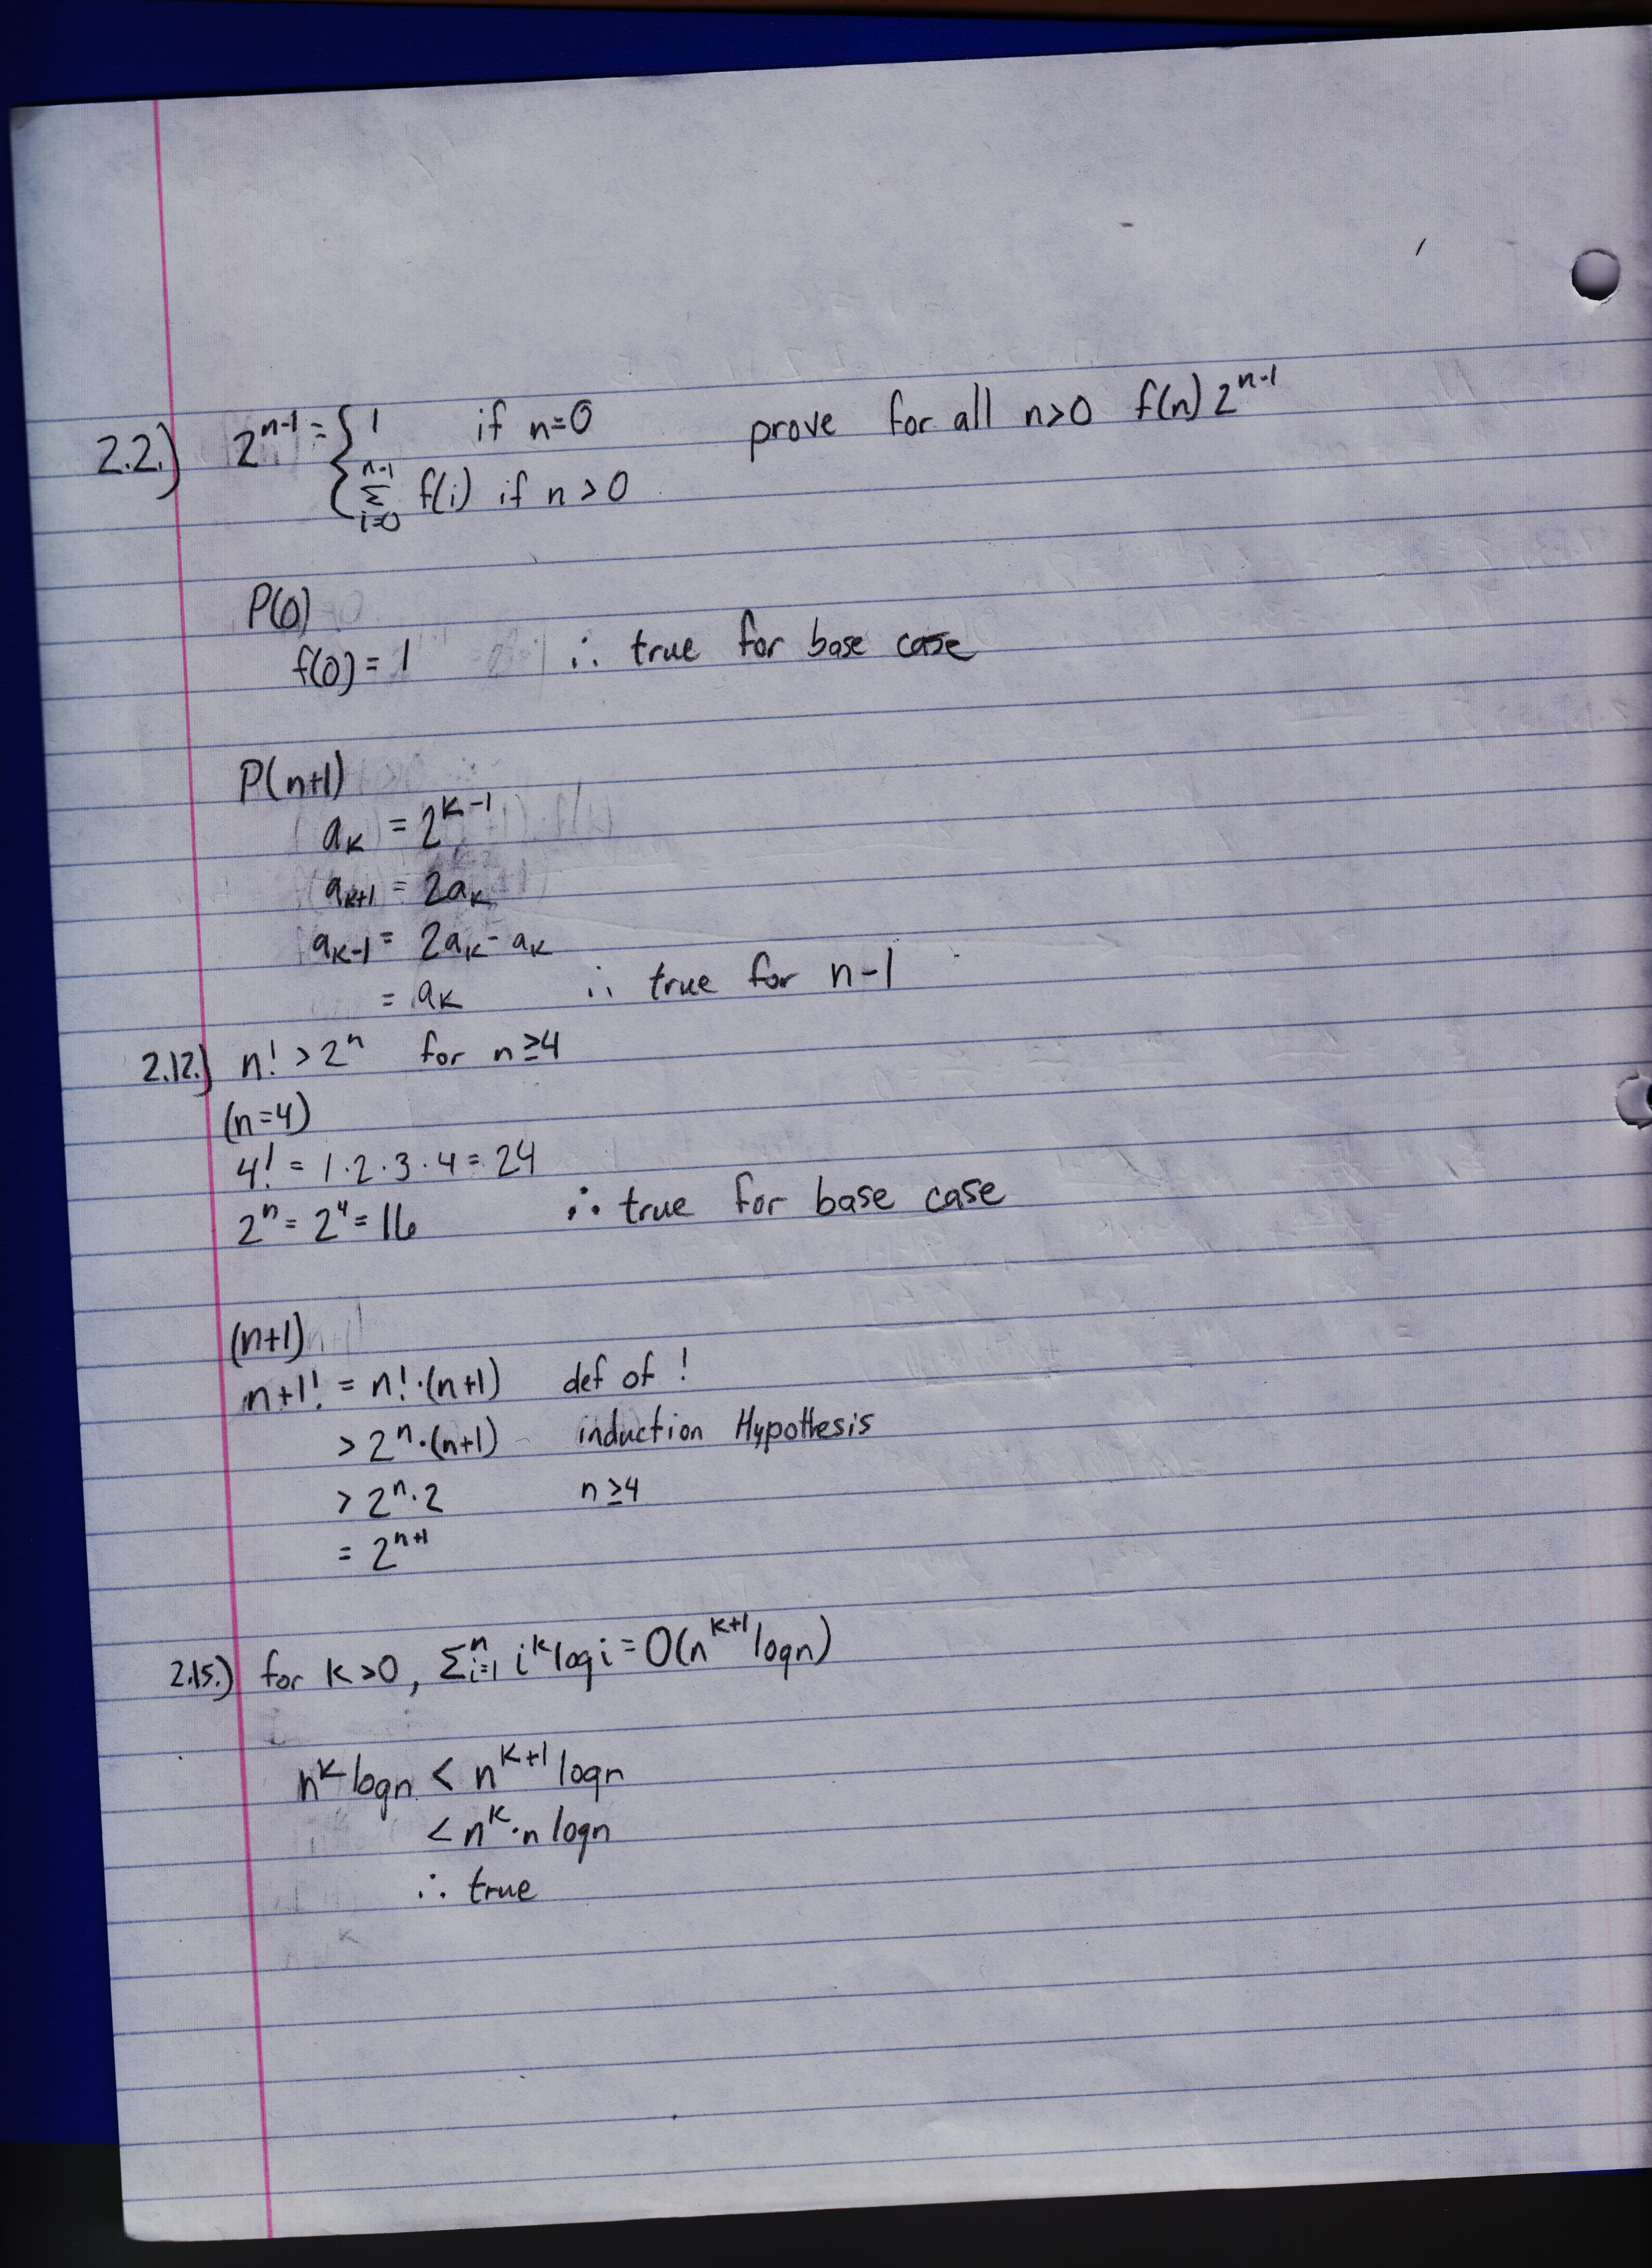 2.2.) 2^{n-1} = { 1 if n=0 prove for all n>0 f(n) 2^{n-1}
{ Σ_{i=0}^{n-1} f(i) if n>0
P(0)
f(0) = 1 ∴ true for base case
P(n+1)
a_K = 2^{K-1}
a_{K+1} = 2a_K
a_{K-1} = 2a_K - a_K
= a_K ∴ true for n-1
2.12.) n! > 2^n for n≥4
(n=4)
4! = 1·2·3·4 = 24
2^n = 2^4 = 16 ∴ true for base case
(n+1)
n+1! = n!·(n+1) def of !
> 2^n·(n+1) induction Hypothesis
> 2^n·2 n≥4
= 2^{n+1}
2.15.) for K>0, Σ_{i=1}^n i^K log i = O(n^{K+1} logn)
n^K logn < n^{K+1} logn
< n^K·n logn
∴ true